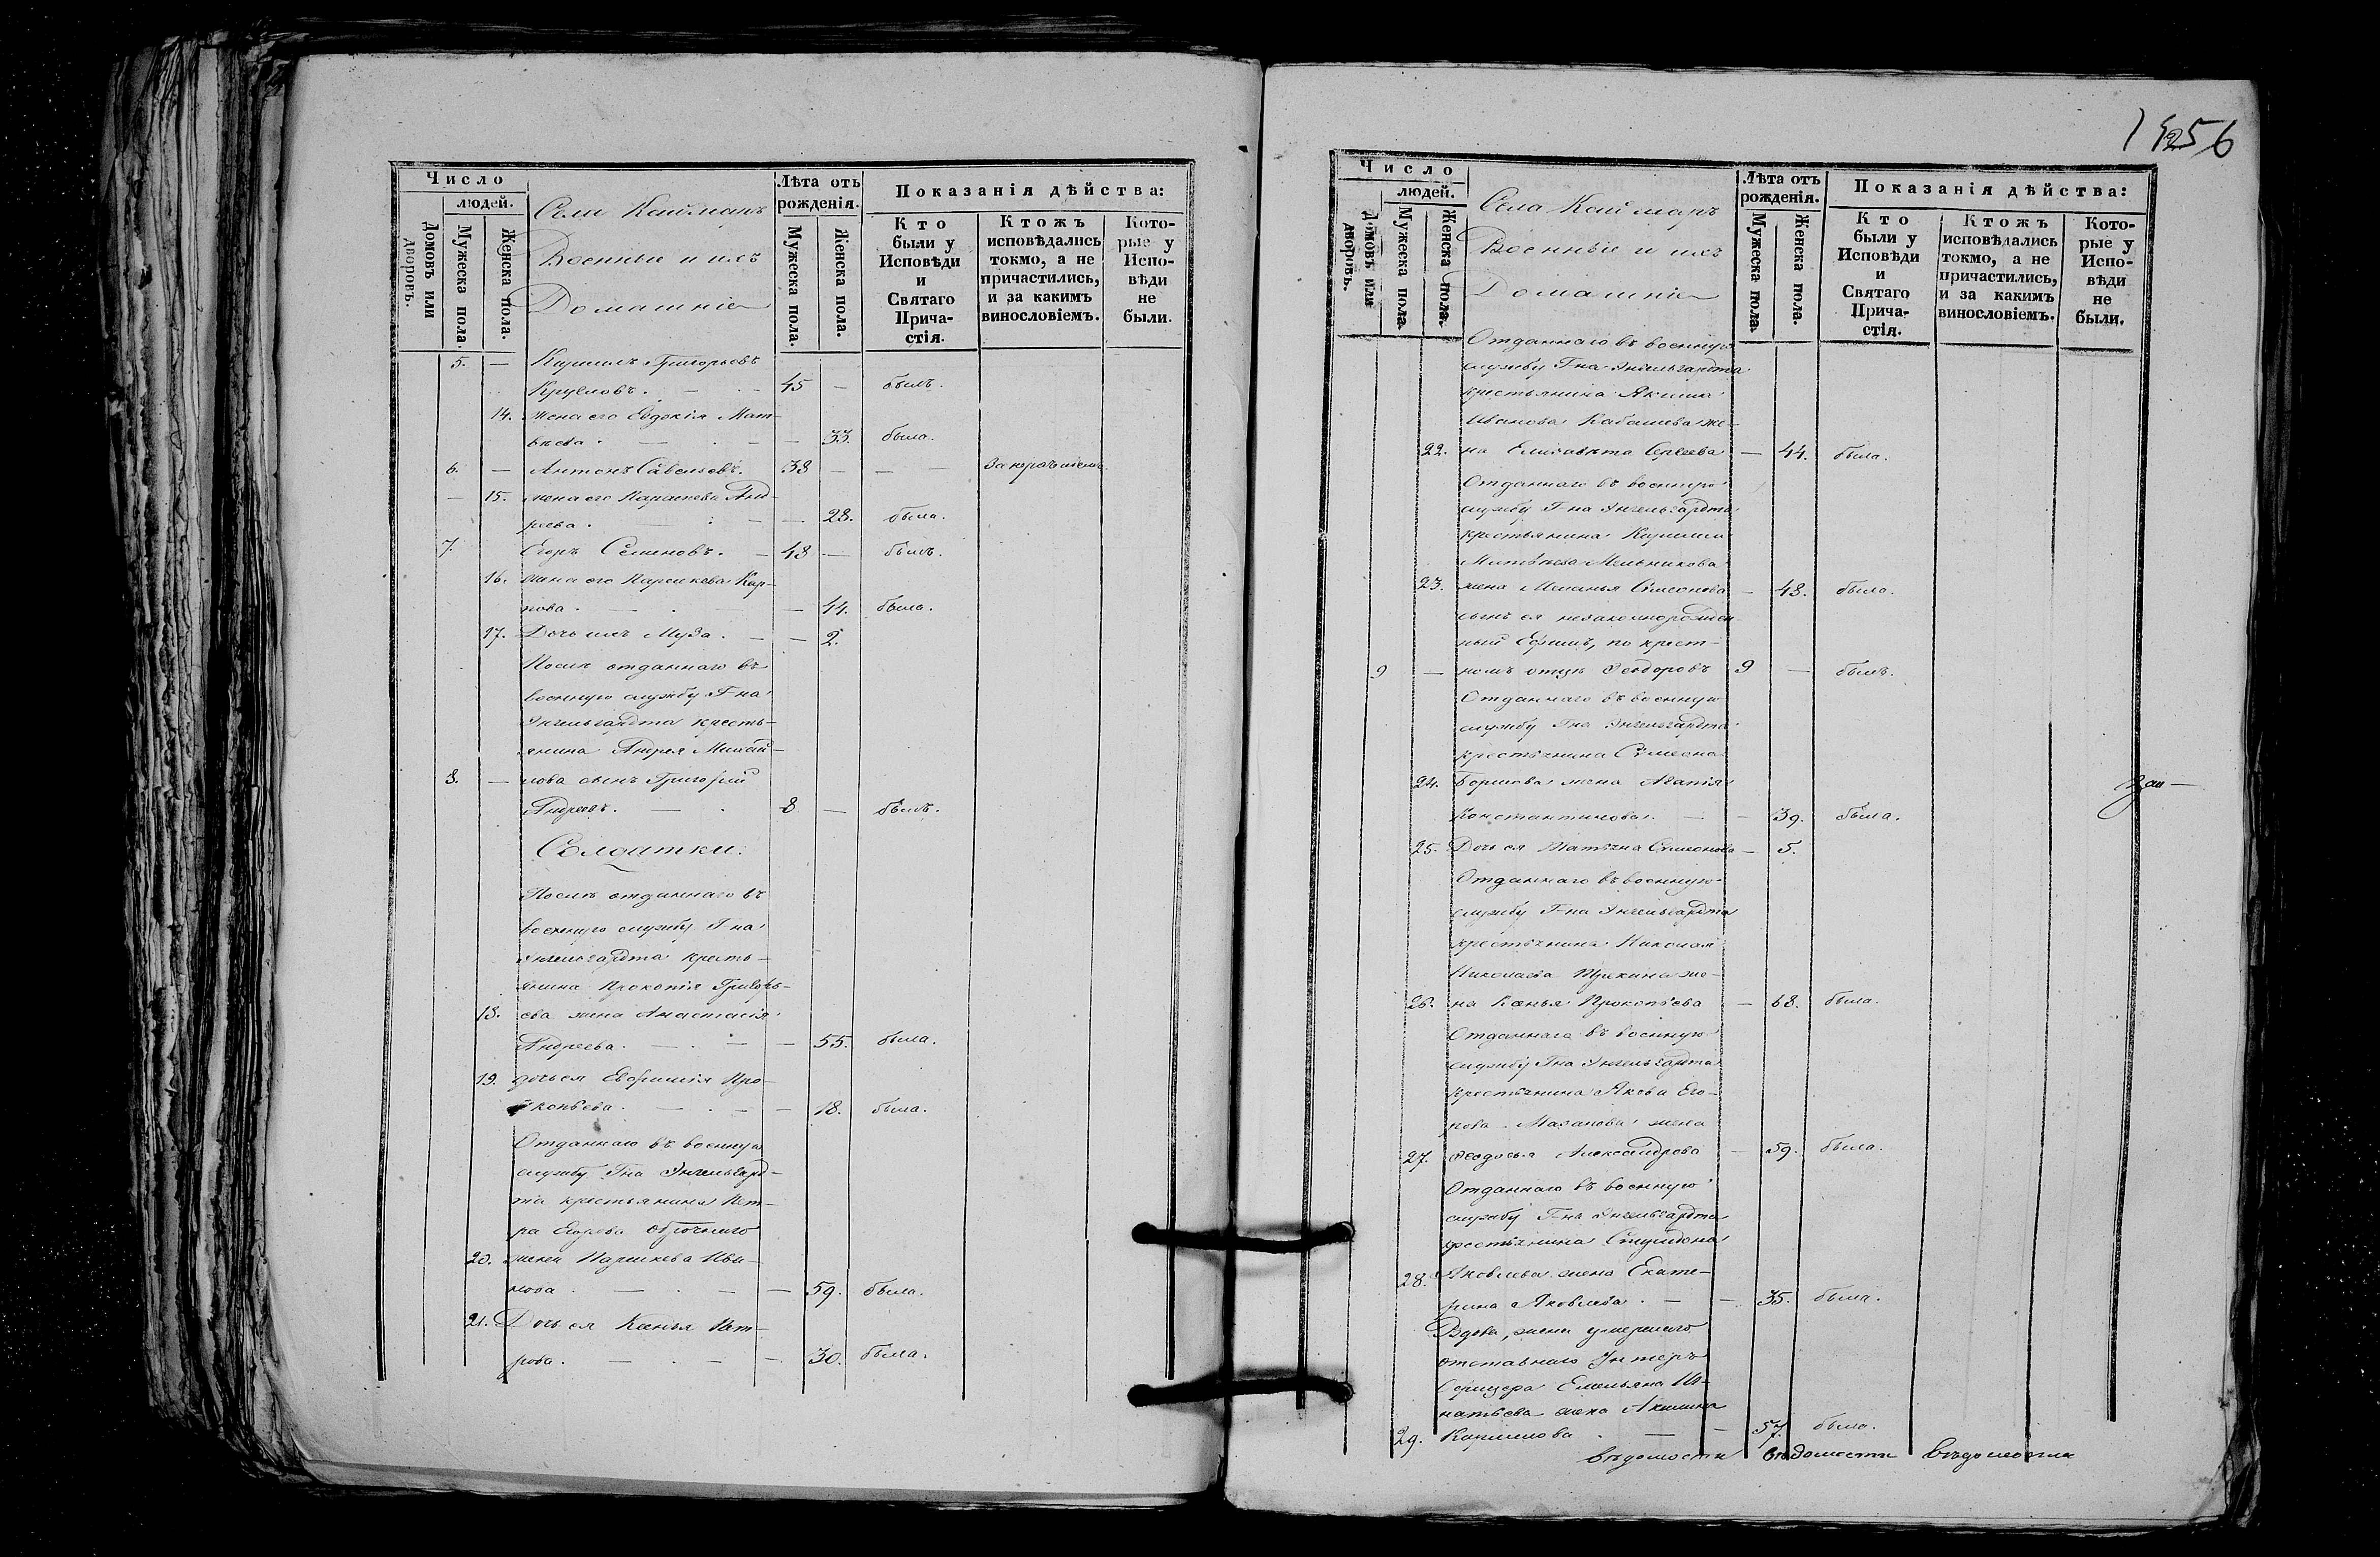 Число
людей.
Домовъ или дворовъ.
Мужеска пола.
Женска пола.
Села Каймаръ
Военные и ихъ
Домашніе
Лѣта отъ рожденія.
Мужеска пола.
Женска пола.
Показанія дѣйства:
Кто были у Исповѣди и Святаго Прича-стія.
Ктожъ исповѣдались токмо, а не причастились, и за какимъ винословіемъ.
Кото-рые у Испо-вѣди не были.
5. — Кирилъ Григорьевъ
Кругловъ. — 45 — былъ.
14. жена его Евдокія Мат-
вѣева. — — 33. была.
6. — Антонъ Савельевъ. 38 — —
— 15. жена его Параскева Анд-
реева. — — 28. была.
7. Егоръ Семеновъ. — 48 — былъ.
16. жена его Параскева Кар-
пова. — — 44. была.
17. Дочь ихъ Муза. — — 2.
Послѣ отданнаго въ
военную службу Г-на
Энгельгардта кресть-
янина Андрея Михай-
8. — лова сынъ Григорій
Андреевъ. — 8 — былъ.
Солдатки.
Послѣ отданнаго въ
военную службу Г-на
Энгельгардта кресть-
янина Прокопія Григорь-
18. ева жена Анастасія
Андреева. — — — 55. была.
19. дочь ея Евфимія Про-
копьева. — — — 18. была.
Отданнаго въ военную
службу Г-на Энгельгард-
та крестьянина Пет-
ра Егорова
20. жена Параскева Ива-
нова. — — — 59. была.
21. Дочь ея Ксенья Пет-
рова. — — — 30. была.
1256
Число
людей.
Домовъ или дворовъ.
Мужеска пола.
Женска пола.
Села Каймаръ
Военные и ихъ
Домашніе
Лѣта отъ рожденія.
Мужеска пола.
Женска пола.
Показанія дѣйства:
Кто были у Исповѣди и Святаго Прича-стія.
Ктожъ исповѣдались токмо, а не причастились, и за какимъ винословіемъ.
Кото-рые у Испо-вѣди не были.
Отданнаго въ военную
службу Г-на Энгельгардта
крестьянина Якима
Иванова Кабашева же-
22. на Елисавета Сергеева — 44. была.
Отданнаго въ военную
службу Г-на Энгельгардта
крестьянина Кирилла
Матвѣева Мельникова
23. жена Меланья Симеонова — 48. была.
сынъ ея незаконорожден-
ный Ефимъ, по крест-
9 — номъ отцѣ Ѳеодоровъ 9 — былъ.
Отданнаго въ военную
службу Г-на Энгельгардта
крестьянина Симеона
24. Борисова жена Агапія
Константинова. — — 39. была.
25. Дочь ея Татьяна Симонова — 5.
Отданнаго въ военную
службу Г-на Энгельгардта
крестьянина Николая
Николаева же-
26. на Ксенья Прокопьева — 68. была.
Отданнаго въ военную
службу Г-на Энгельгардта
крестьянина Якова Его-
рова жена
27. Ѳеодосья Александрова — 59. была.
Отданнаго въ военную
службу Г-на Энгельгардта
крестьянина Спиридона
28. Яковлева жена Екате-
рина Яковлева. — — 35. была.
Вдова, жена умершаго
отставнаго Унтеръ
Офицера Емельяна Иг-
натьева жена Акилина
29. Кириллова. — — 57. была.
вѣдомости вѣдомости вѣдомости